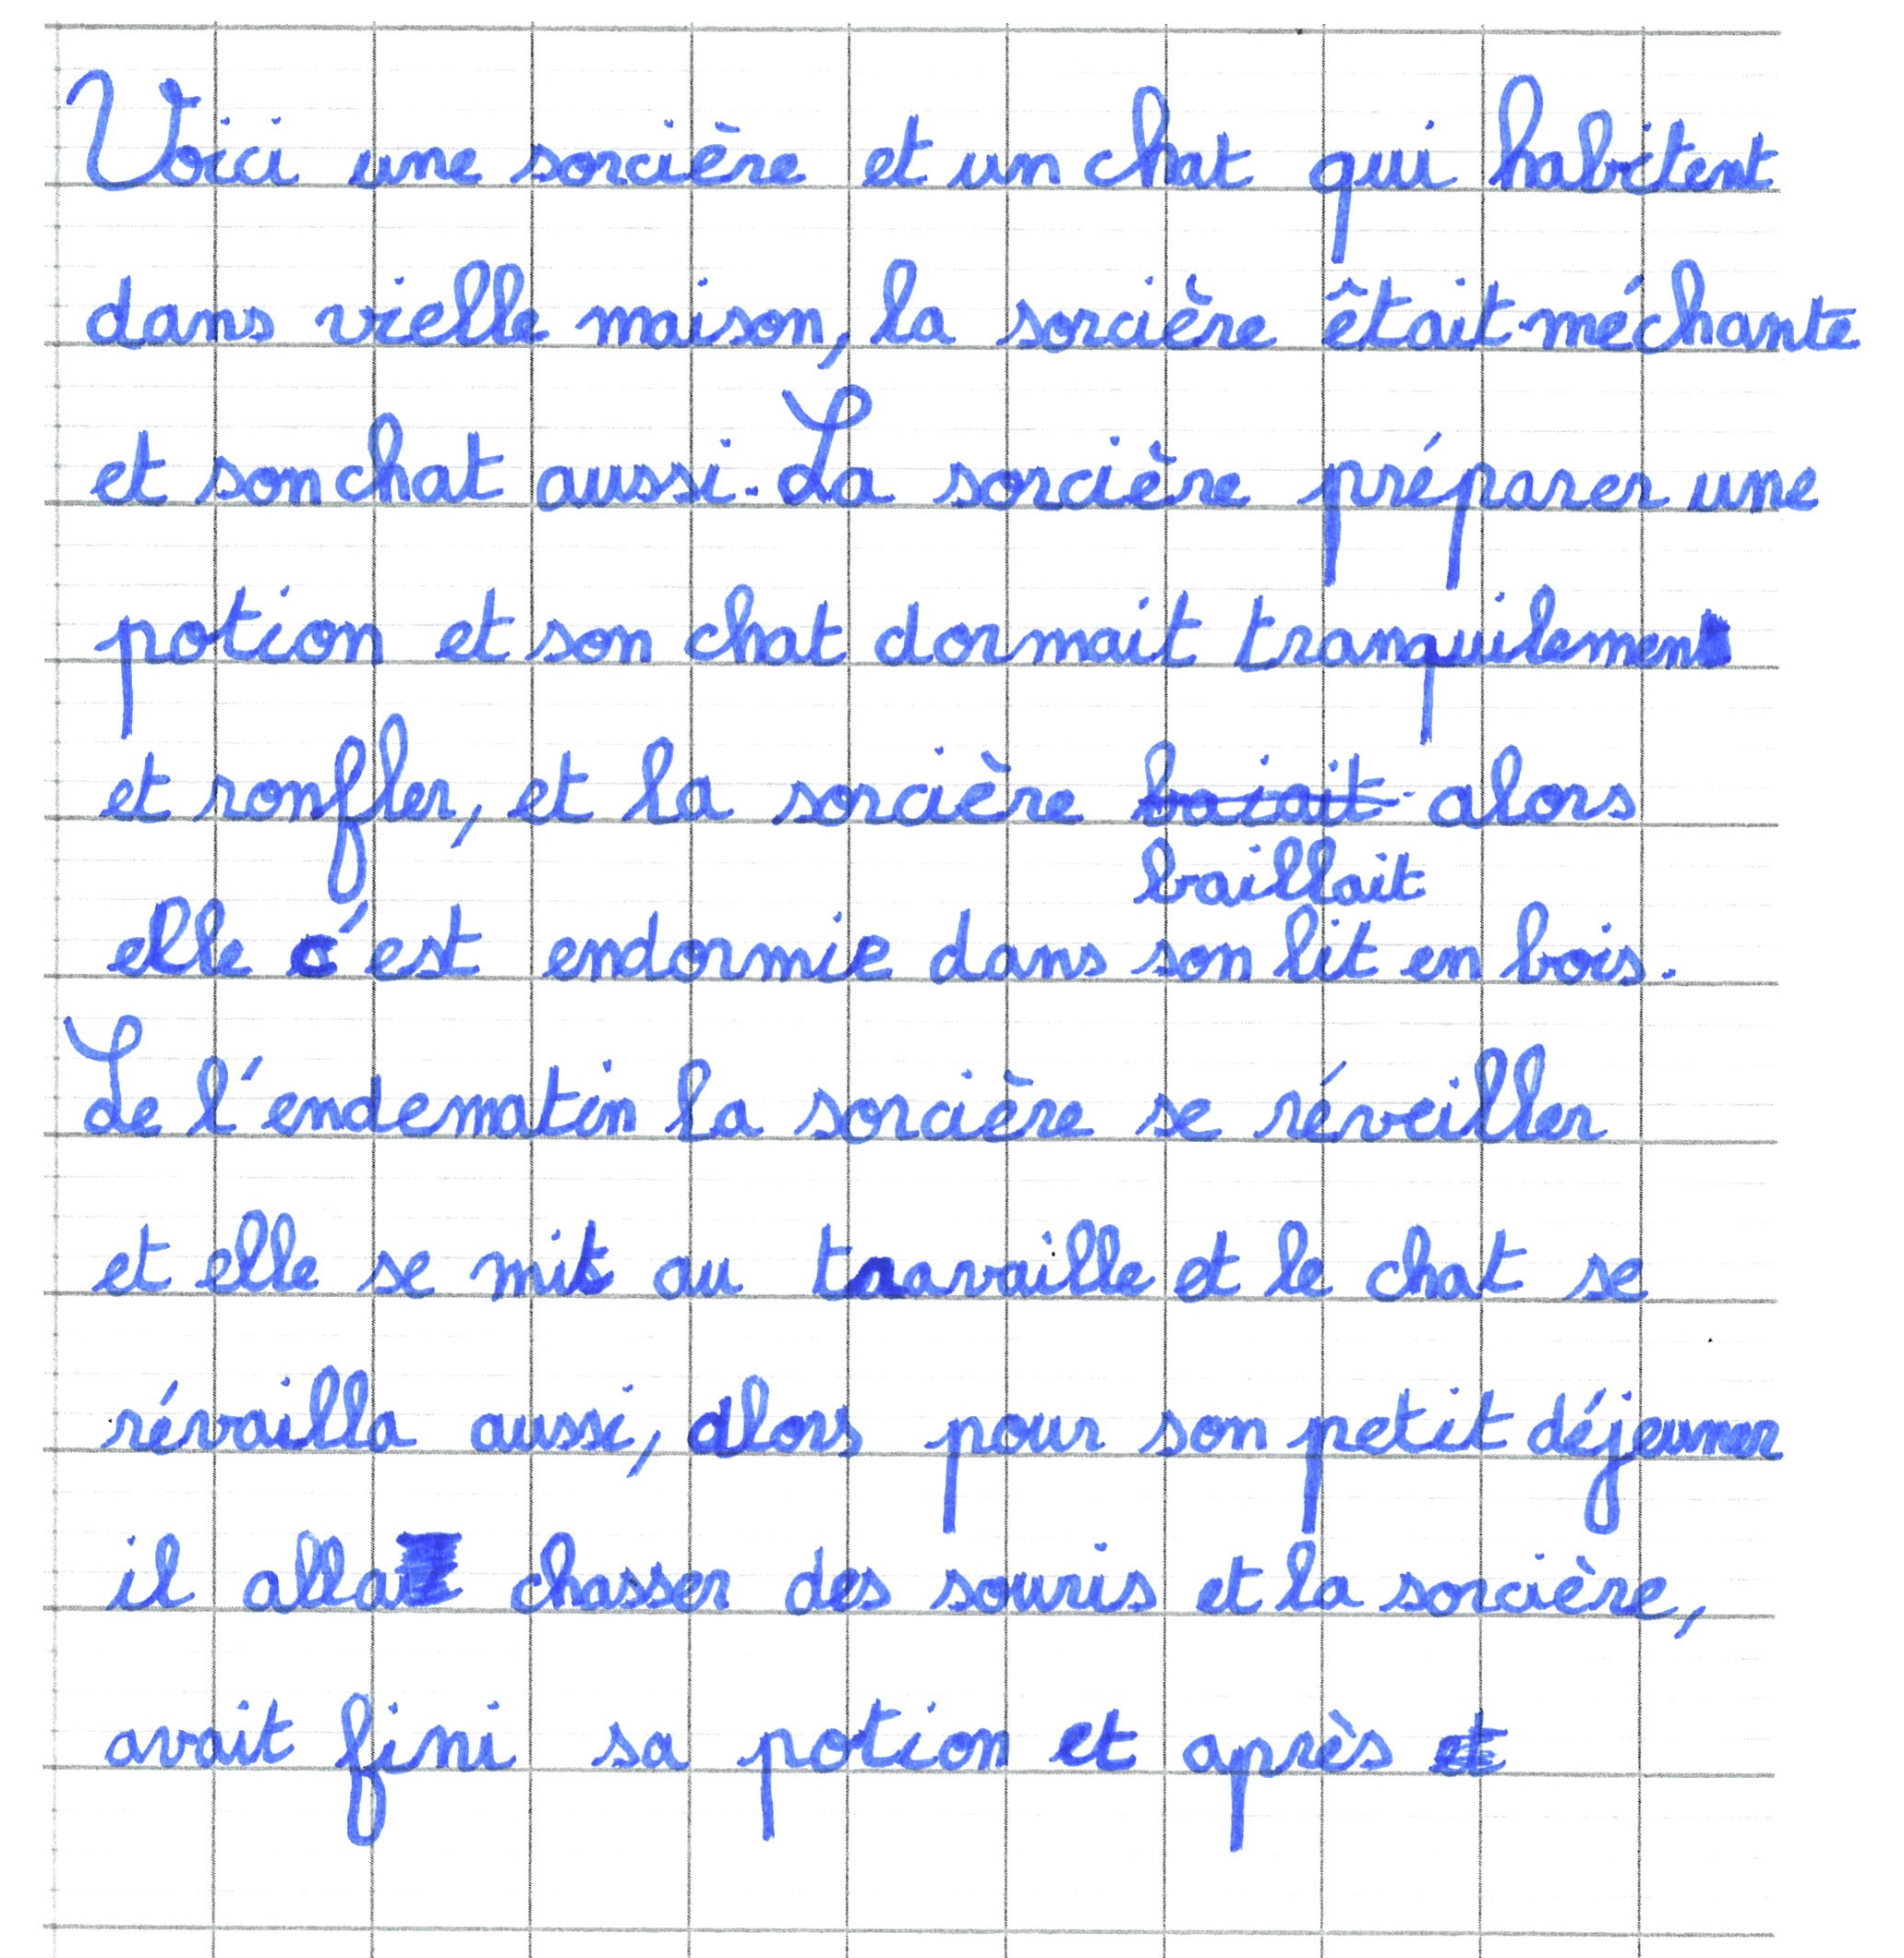 Voici une sorcière et un chat qui habitent
dans vielle maison, la sorcière êtait méchante
et son chat aussi. La sorcière préparer une
potion et son chat dormait tranquilement
et ronfler, et la sorcière baiait alors
baillait
elle c'est endormie dans son lit en bois.
Le l'endematin la sorcière se réveiller
et elle se mit au travaille et le chat se
révailla aussi, alors pour son petit déjeuner
il alla chasser des souris et la sorcière,
avait fini sa potion et après et